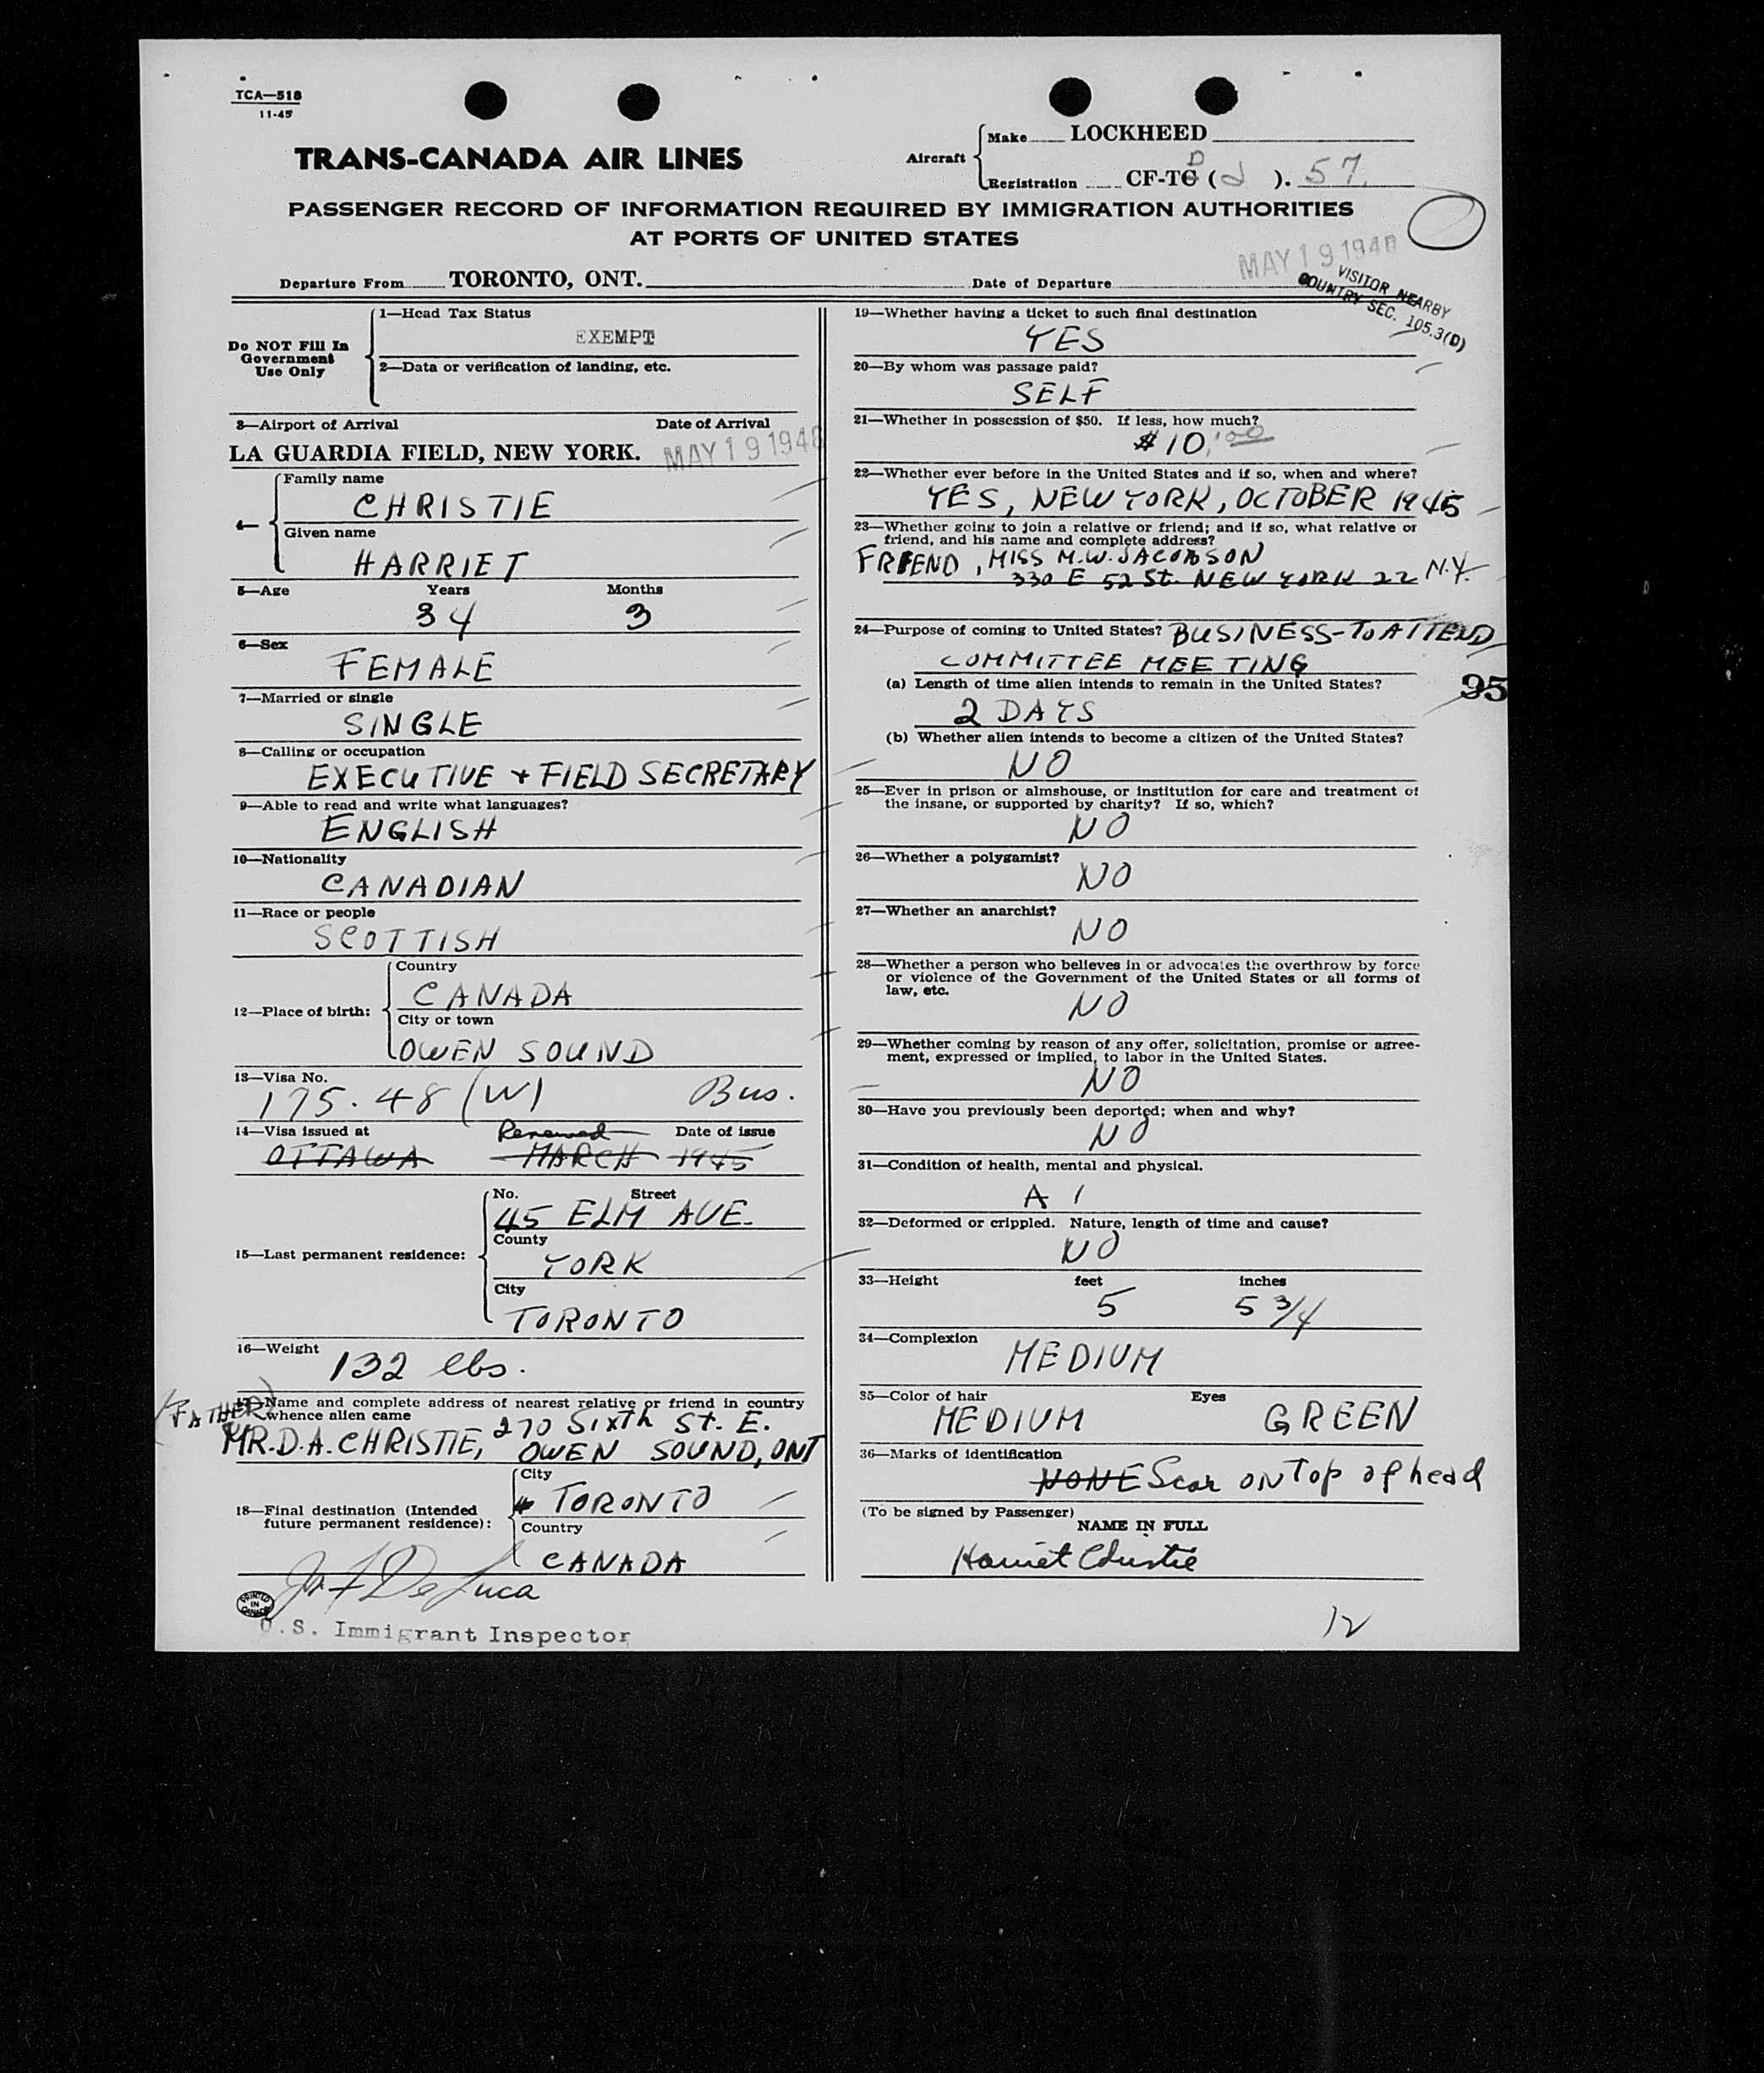 TCA—518
11-45
TRANS-CANADA AIR LINES
Aircraft
Make LOCKHEED
Registration CF-TG D ( d ). 57.
PASSENGER RECORD OF INFORMATION REQUIRED BY IMMIGRATION AUTHORITIES
AT PORTS OF UNITED STATES
MAY 19 1946
VISITOR NEARBY
COUNTRY SEC. 105.3(D)
Departure From TORONTO, ONT. Date of Departure
Do NOT Fill In
Government
Use Only
1—Head Tax Status
EXEMPT
2—Data or verification of landing, etc.
3—Airport of Arrival Date of Arrival
LA GUARDIA FIELD, NEW YORK. MAY 19 1946
4—
Family name
CHRISTIE
Given name
HARRIET
5—Age Years Months
34 3
6—Sex
FEMALE
7—Married or single
SINGLE
8—Calling or occupation
EXECUTIVE + FIELD SECRETARY
9—Able to read and write what languages?
ENGLISH
10—Nationality
CANADIAN
11—Race or people
SCOTTISH
12—Place of birth:
Country
CANADA
City or town
OWEN SOUND
13—Visa No.
175.48 (W) Bus.
14—Visa issued at Renewed Date of issue
OTTAWA MARCH 1945
15—Last permanent residence:
No. Street
45 ELM AVE.
County
YORK
City
TORONTO
16—Weight
132 lbs.
17—Name and complete address of nearest relative or friend in country
whence alien came
(FATHER)
270 SIXTH ST. E.
MR. D. A. CHRISTIE, OWEN SOUND, ONT
18—Final destination (Intended
future permanent residence):
City
TORONTO
Country
CANADA
De Luca
PRINTED
IN
CANADA
U.S. Immigrant Inspector
19—Whether having a ticket to such final destination
YES
20—By whom was passage paid?
SELF
21—Whether in possession of $50. If less, how much?
$10.00
22—Whether ever before in the United States and if so, when and where?
YES, NEW YORK, OCTOBER 1945
23—Whether going to join a relative or friend; and if so, what relative or
friend, and his name and complete address?
FRIEND, MISS M.W. JACOBSON
330 E 52 St. NEW YORK 22 N.Y.
24—Purpose of coming to United States? BUSINESS-TO ATTEND
COMMITTEE MEETING
(a) Length of time alien intends to remain in the United States?
95
2 DAYS
(b) Whether alien intends to become a citizen of the United States?
NO
25—Ever in prison or almshouse, or institution for care and treatment of
the insane, or supported by charity? If so, which?
NO
26—Whether a polygamist?
NO
27—Whether an anarchist?
NO
28—Whether a person who believes in or advocates the overthrow by force
or violence of the Government of the United States or all forms of
law, etc.
NO
29—Whether coming by reason of any offer, solicitation, promise or agree-
ment, expressed or implied, to labor in the United States.
NO
30—Have you previously been deported; when and why?
NO
31—Condition of health, mental and physical.
A 1
32—Deformed or crippled. Nature, length of time and cause?
NO
33—Height feet inches
5 5 3/4
34—Complexion
MEDIUM
35—Color of hair Eyes
MEDIUM GREEN
36—Marks of identification
NONE Scar on Top of head
(To be signed by Passenger)
NAME IN FULL
Harriet Christie
12